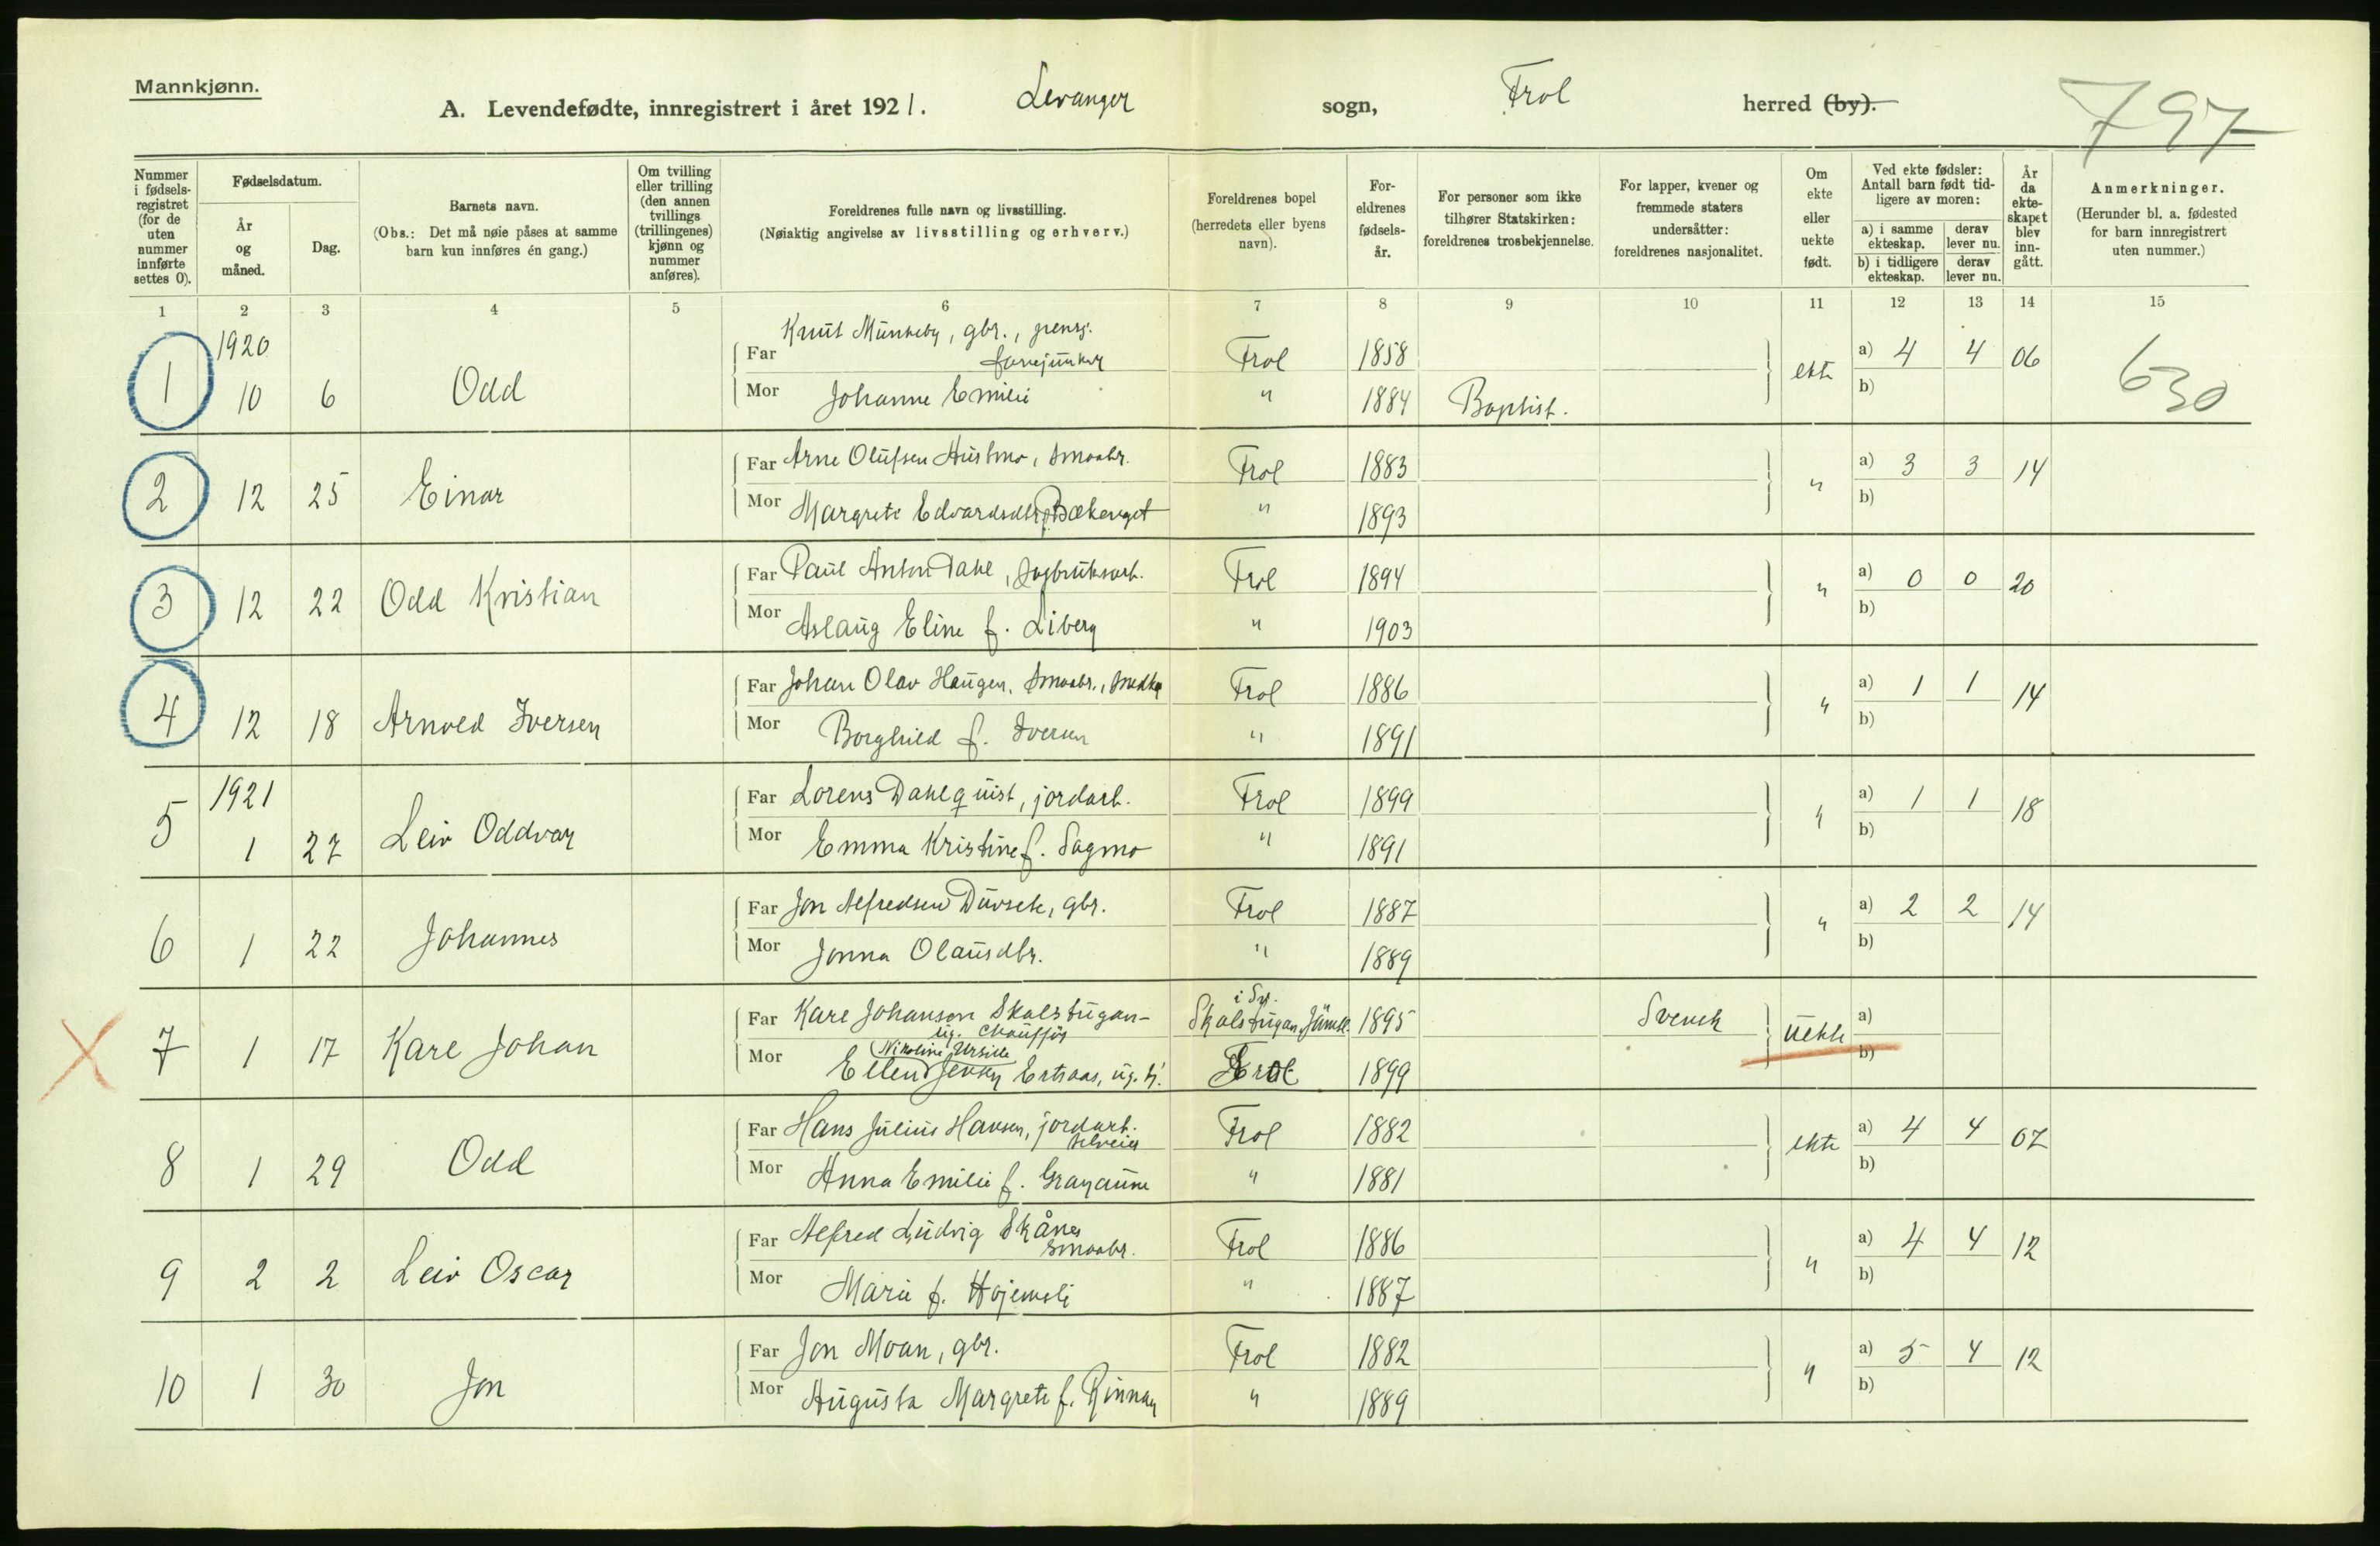 Mannkjønn.
A. Levendefødte, innregistrert i året 1921. Levanger sogn, Frol herred (by).
797
Nummer i fødsels-registret (for de uten nummer innførte settes 0).
Fødselsdatum.
År og måned.
Dag.
Barnets navn.
(Obs.: Det må nøie påses at samme barn kun innføres én gang.)
Om tvilling eller trilling (den annen tvillings (trillingenes) kjønn og nummer anføres).
Foreldrenes fulle navn og livsstilling.
(Nøiaktig angivelse av livsstilling og erhverv.)
Foreldrenes bopel (herredets eller byens navn).
For-eldrenes fødsels-år.
For personer som ikke tilhører Statskirken: foreldrenes trosbekjennelse.
For lapper, kvener og fremmede staters undersåtter: foreldrenes nasjonalitet.
Om ekte eller uekte født.
Ved ekte fødsler: Antall barn født tid-ligere av moren:
a) i samme ekteskap. derav lever nu.
b) i tidligere ekteskap. derav lever nu.
År da ekte-skapet blev inn-gått.
Anmerkninger.
(Herunder bl. a. fødested for barn innregistrert uten nummer.)
1 2 3 4 5 6 7 8 9 10 11 12 13 14 15
1 1920 10 6 Odd
Far Knut Munkeby, gbr., Frol 1858 ekte a) 4 4 06 630
Mor Johanne Emilie " 1884 Baptist. b)
2 12 25 Einar
Far Arne Olufsen Austmo, smaabr. Frol 1883 " a) 3 3 14
Mor Margrete Edvardsdtr. Bækenget " 1893 b)
3 12 22 Odd Kristian
Far Paul Anton Dahl, sagbruksarb. Frol 1894 " a) 0 0 20
Mor Aslaug Eline f. Liberg " 1903 b)
4 12 18 Arnold Iversen
Far Johan Olav Haugen, smaabr., Frol 1886 " a) 1 1 14
Mor Borghild f. Iversen " 1891 b)
5 1921 1 27 Leiv Oddvar
Far Lorens Dahlquist, jordarb. Frol 1899 " a) 1 1 18
Mor Emma Kristine f. Sagmo " 1891 b)
6 1 22 Johannes
Far Jon Alfredsen Duvsete, gbr. Frol 1887 " a) 2 2 14
Mor Jonna Olausdtr. " 1889 b)
7 1 17 Karl Johan
Far Karl Johanson Skalstugan- ug. chaufför i Sv. Skalstugan, Jämtl. 1895 Svensk uekte a)
Mor Nikoline Ursille Ellen Jenny Ertsaas, ug. tj. Frol 1899 b)
8 1 29 Odd
Far Hans Julius Hansen, jordarb. selveier Frol 1882 ekte a) 4 4 07
Mor Anna Emilie f. Granaune " 1881 b)
9 2 2 Leiv Oscar
Far Alfred Ludvig Skånes smaabr. Frol 1886 " a) 4 4 12
Mor Marie f. Højemsli " 1887 b)
10 1 30 Jon
Far Jon Moan, gbr. Frol 1882 " a) 5 4 12
Mor Augusta Margrete f. Rinnan " 1889 b)